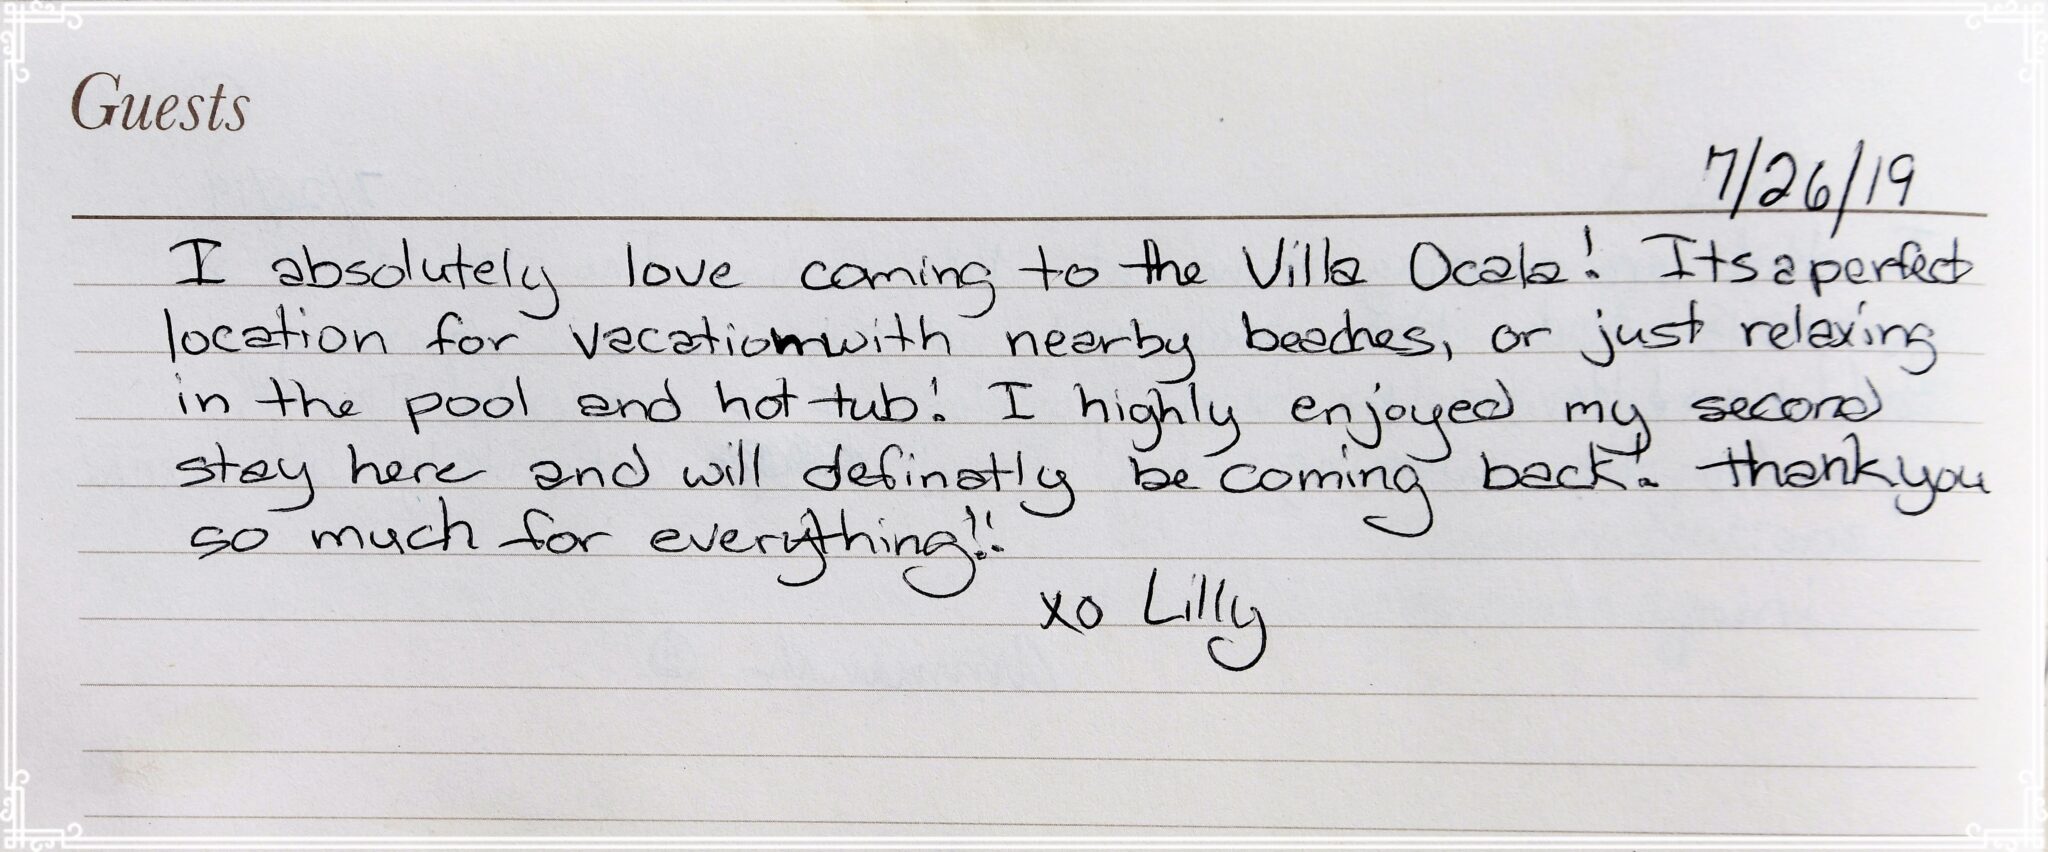 Guests
7/26/19
I absolutely love coming to the Villa Ocala! Its a perfect
location for vacation with nearby beaches, or just relaxing
in the pool and hot tub! I highly enjoyed my second
stay here and will definatly be coming back! thank you
so much for everything!!
xo Lilly